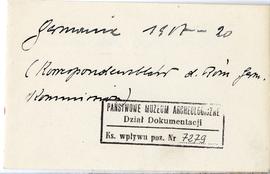 Germania 1917–20
(Korrespondenzblatt d. Röm. Germ.
Kommission)
PAŃSTWOWE MUZEUM ARCHEOLOGICZNE
Dział Dokumentacji
Ks. wpływu poz. Nr 7279